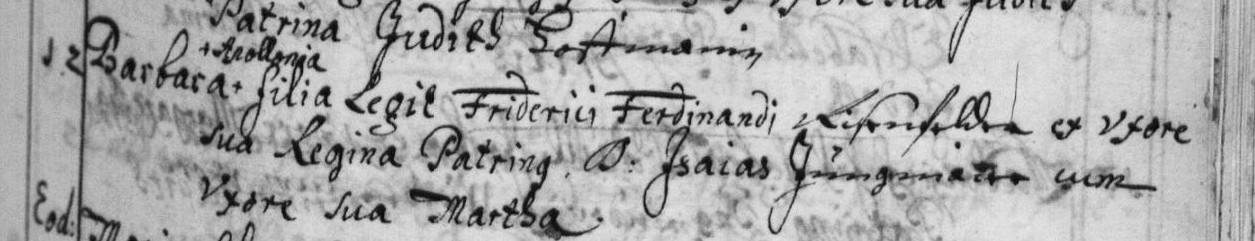 Patrina Judith Hoffmanin
+ Apollonia
12 Barbara + filia Legit Friderici Ferdinandi Eisenfelder ex Uxore
sua Regina Patrinq. D: Isaias Jüngmair cum
Uxore sua Martha.
Eod: